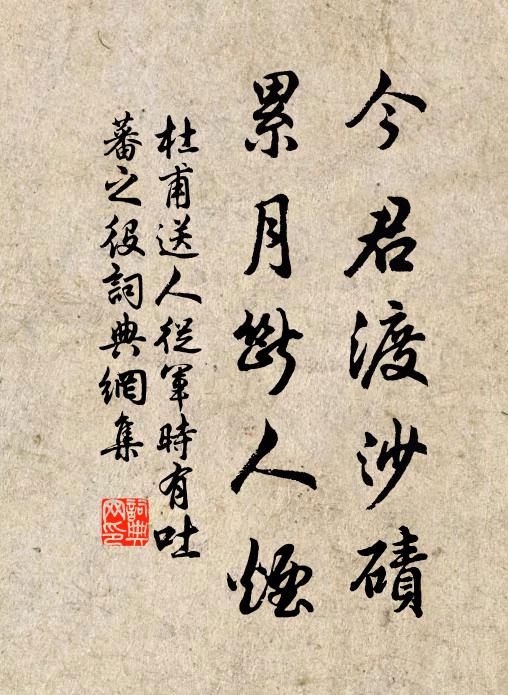 今君渡沙磧
累月斷人煙
杜甫送人從軍時有吐
蕃之役詞典網集
詞典
网印